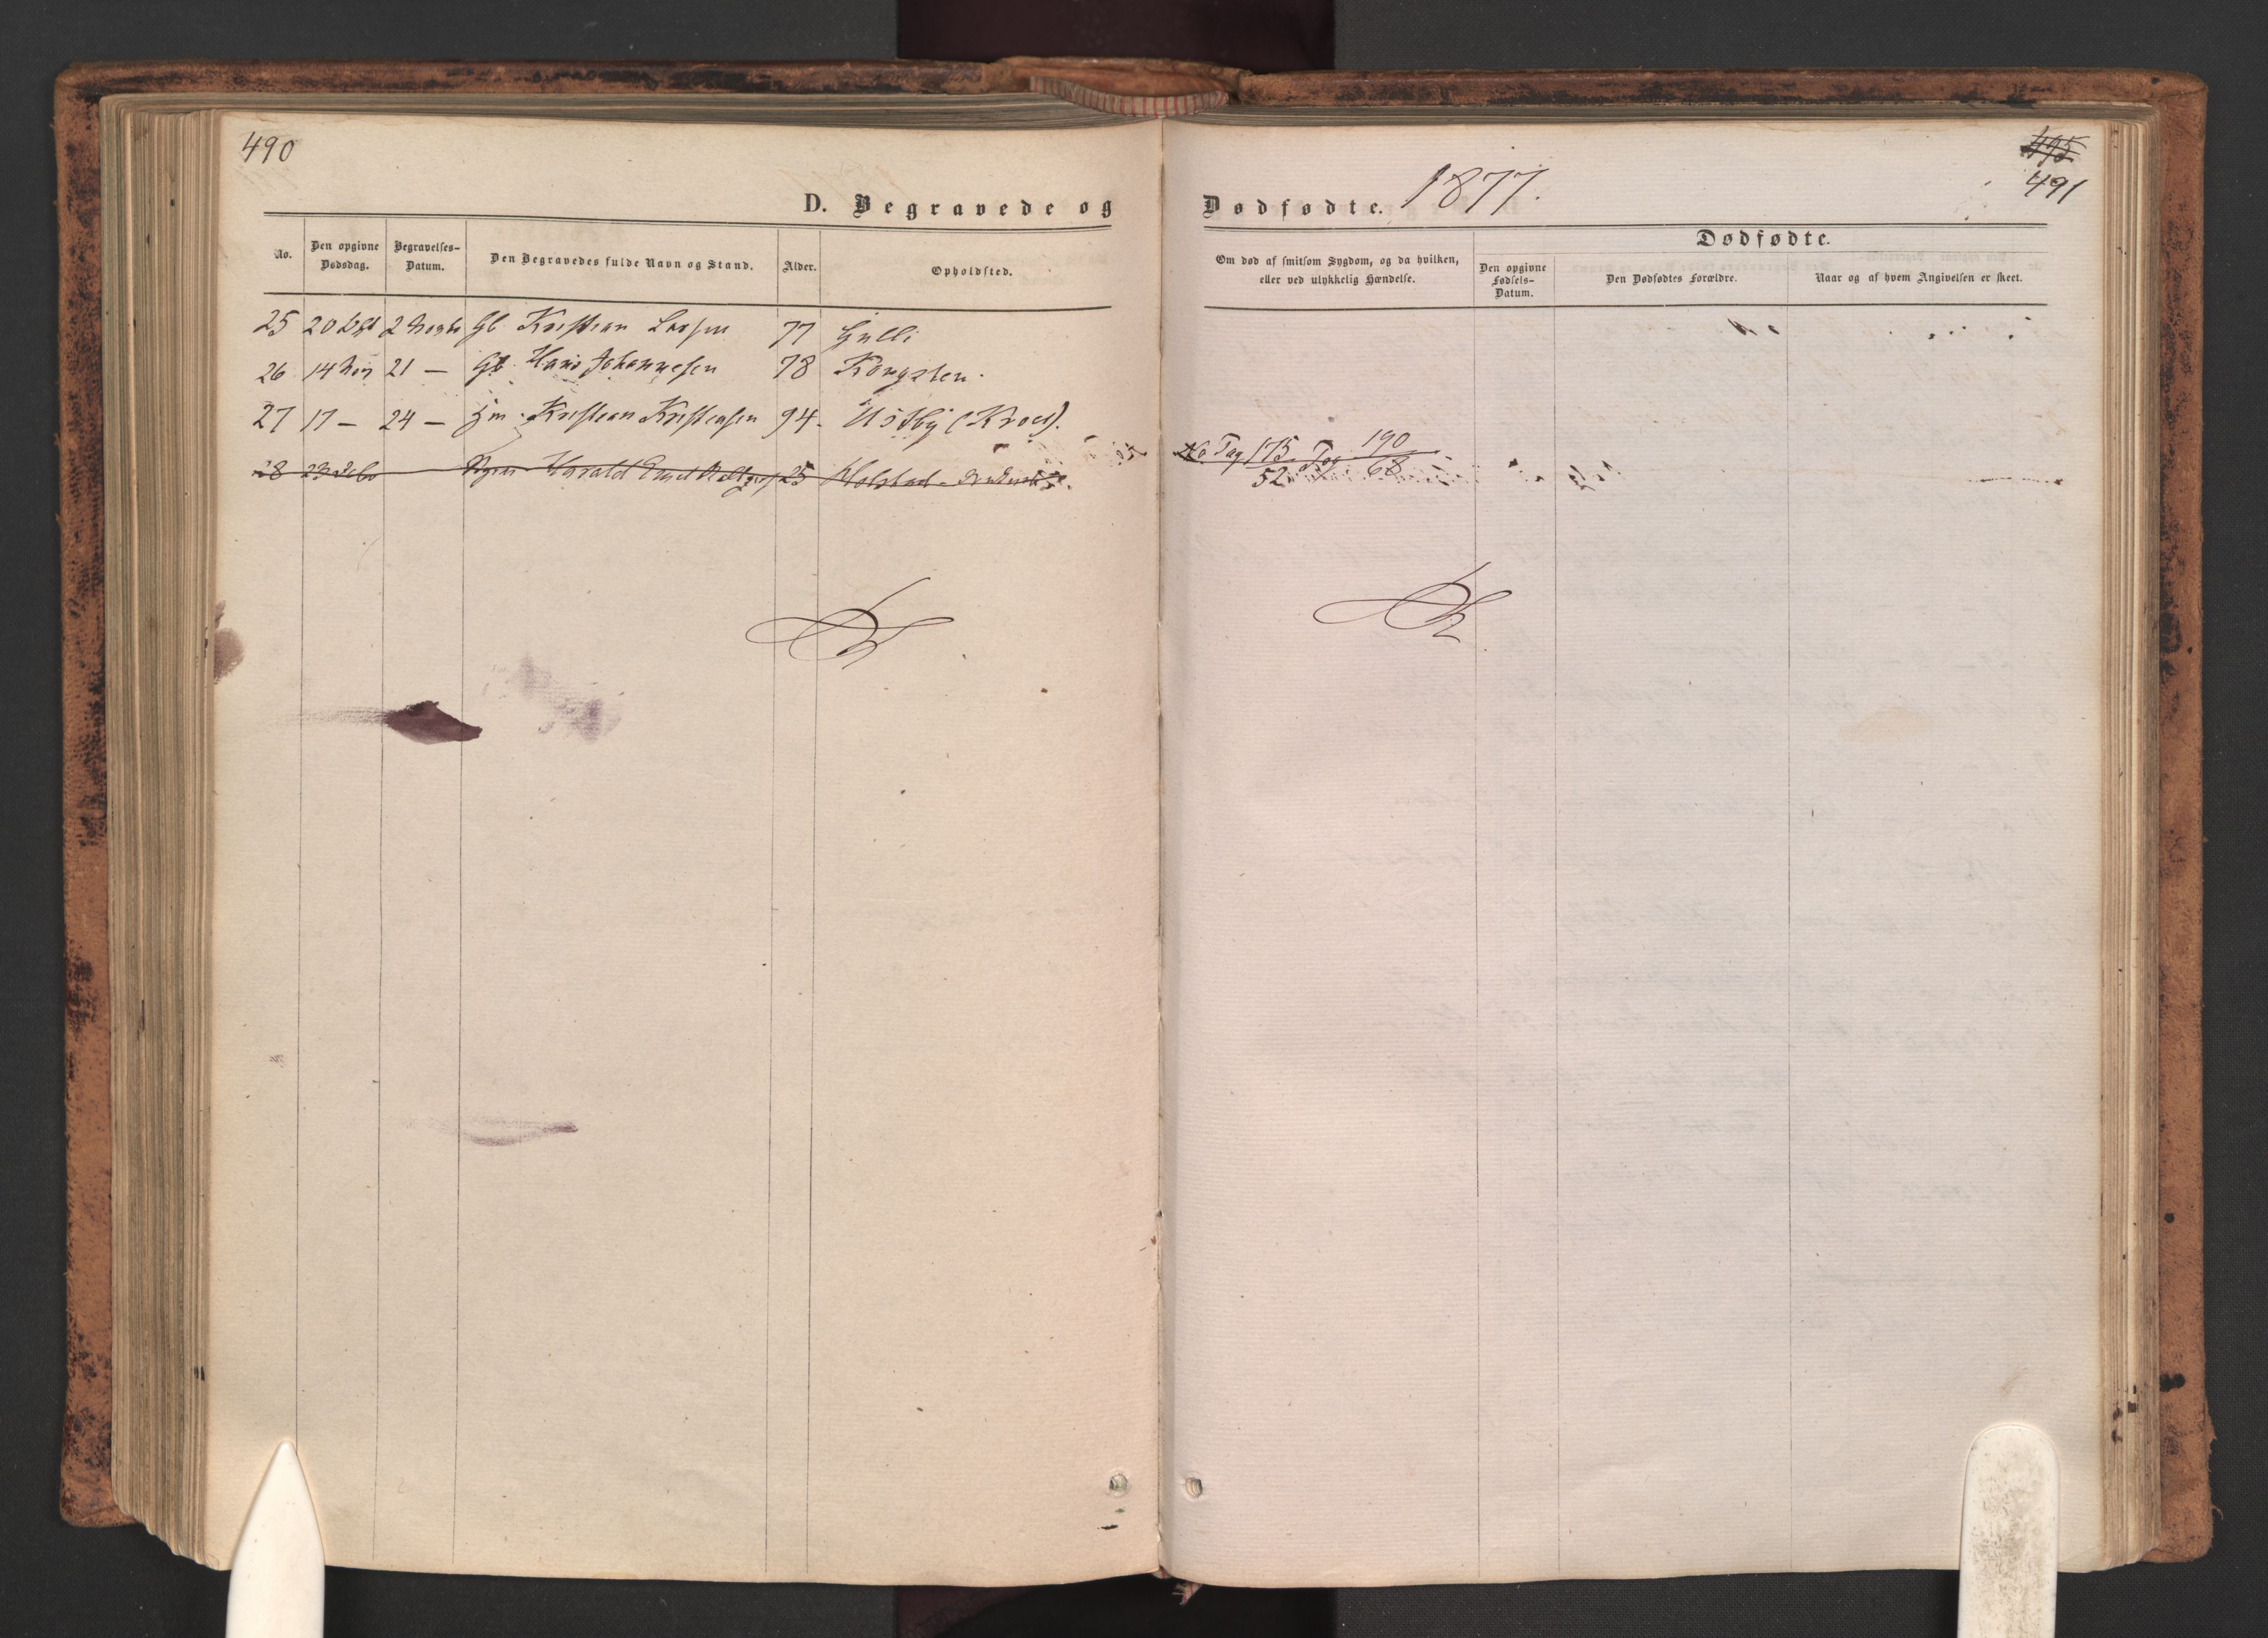 490
D. Begravede og
No. Den opgivne Dødsdag. Begravelses-Datum. Den Begravedes fulde Navn og Stand. Alder. Opholdsted.
25 20 2 Gb. Kristian Larsen 77 Gulli
26 14 Nov 21 — Gb. Hans Johannesen 78 Kongsten.
27 17 — 24 — Kristian Kristensen 94. Ustby (Kroer).
28 23 Harald 25 Holstad
495
491
Dødfødte. 1877.
Dødfødte.
Om død af smitsom Sygdom, og da hvilken, eller ved ulykkelig Hændelse. Den opgivne Fødsels-Datum. Den Dødfødtes Forældre. Naar og af hvem Angivelsen er skeet.
175 190
52 68